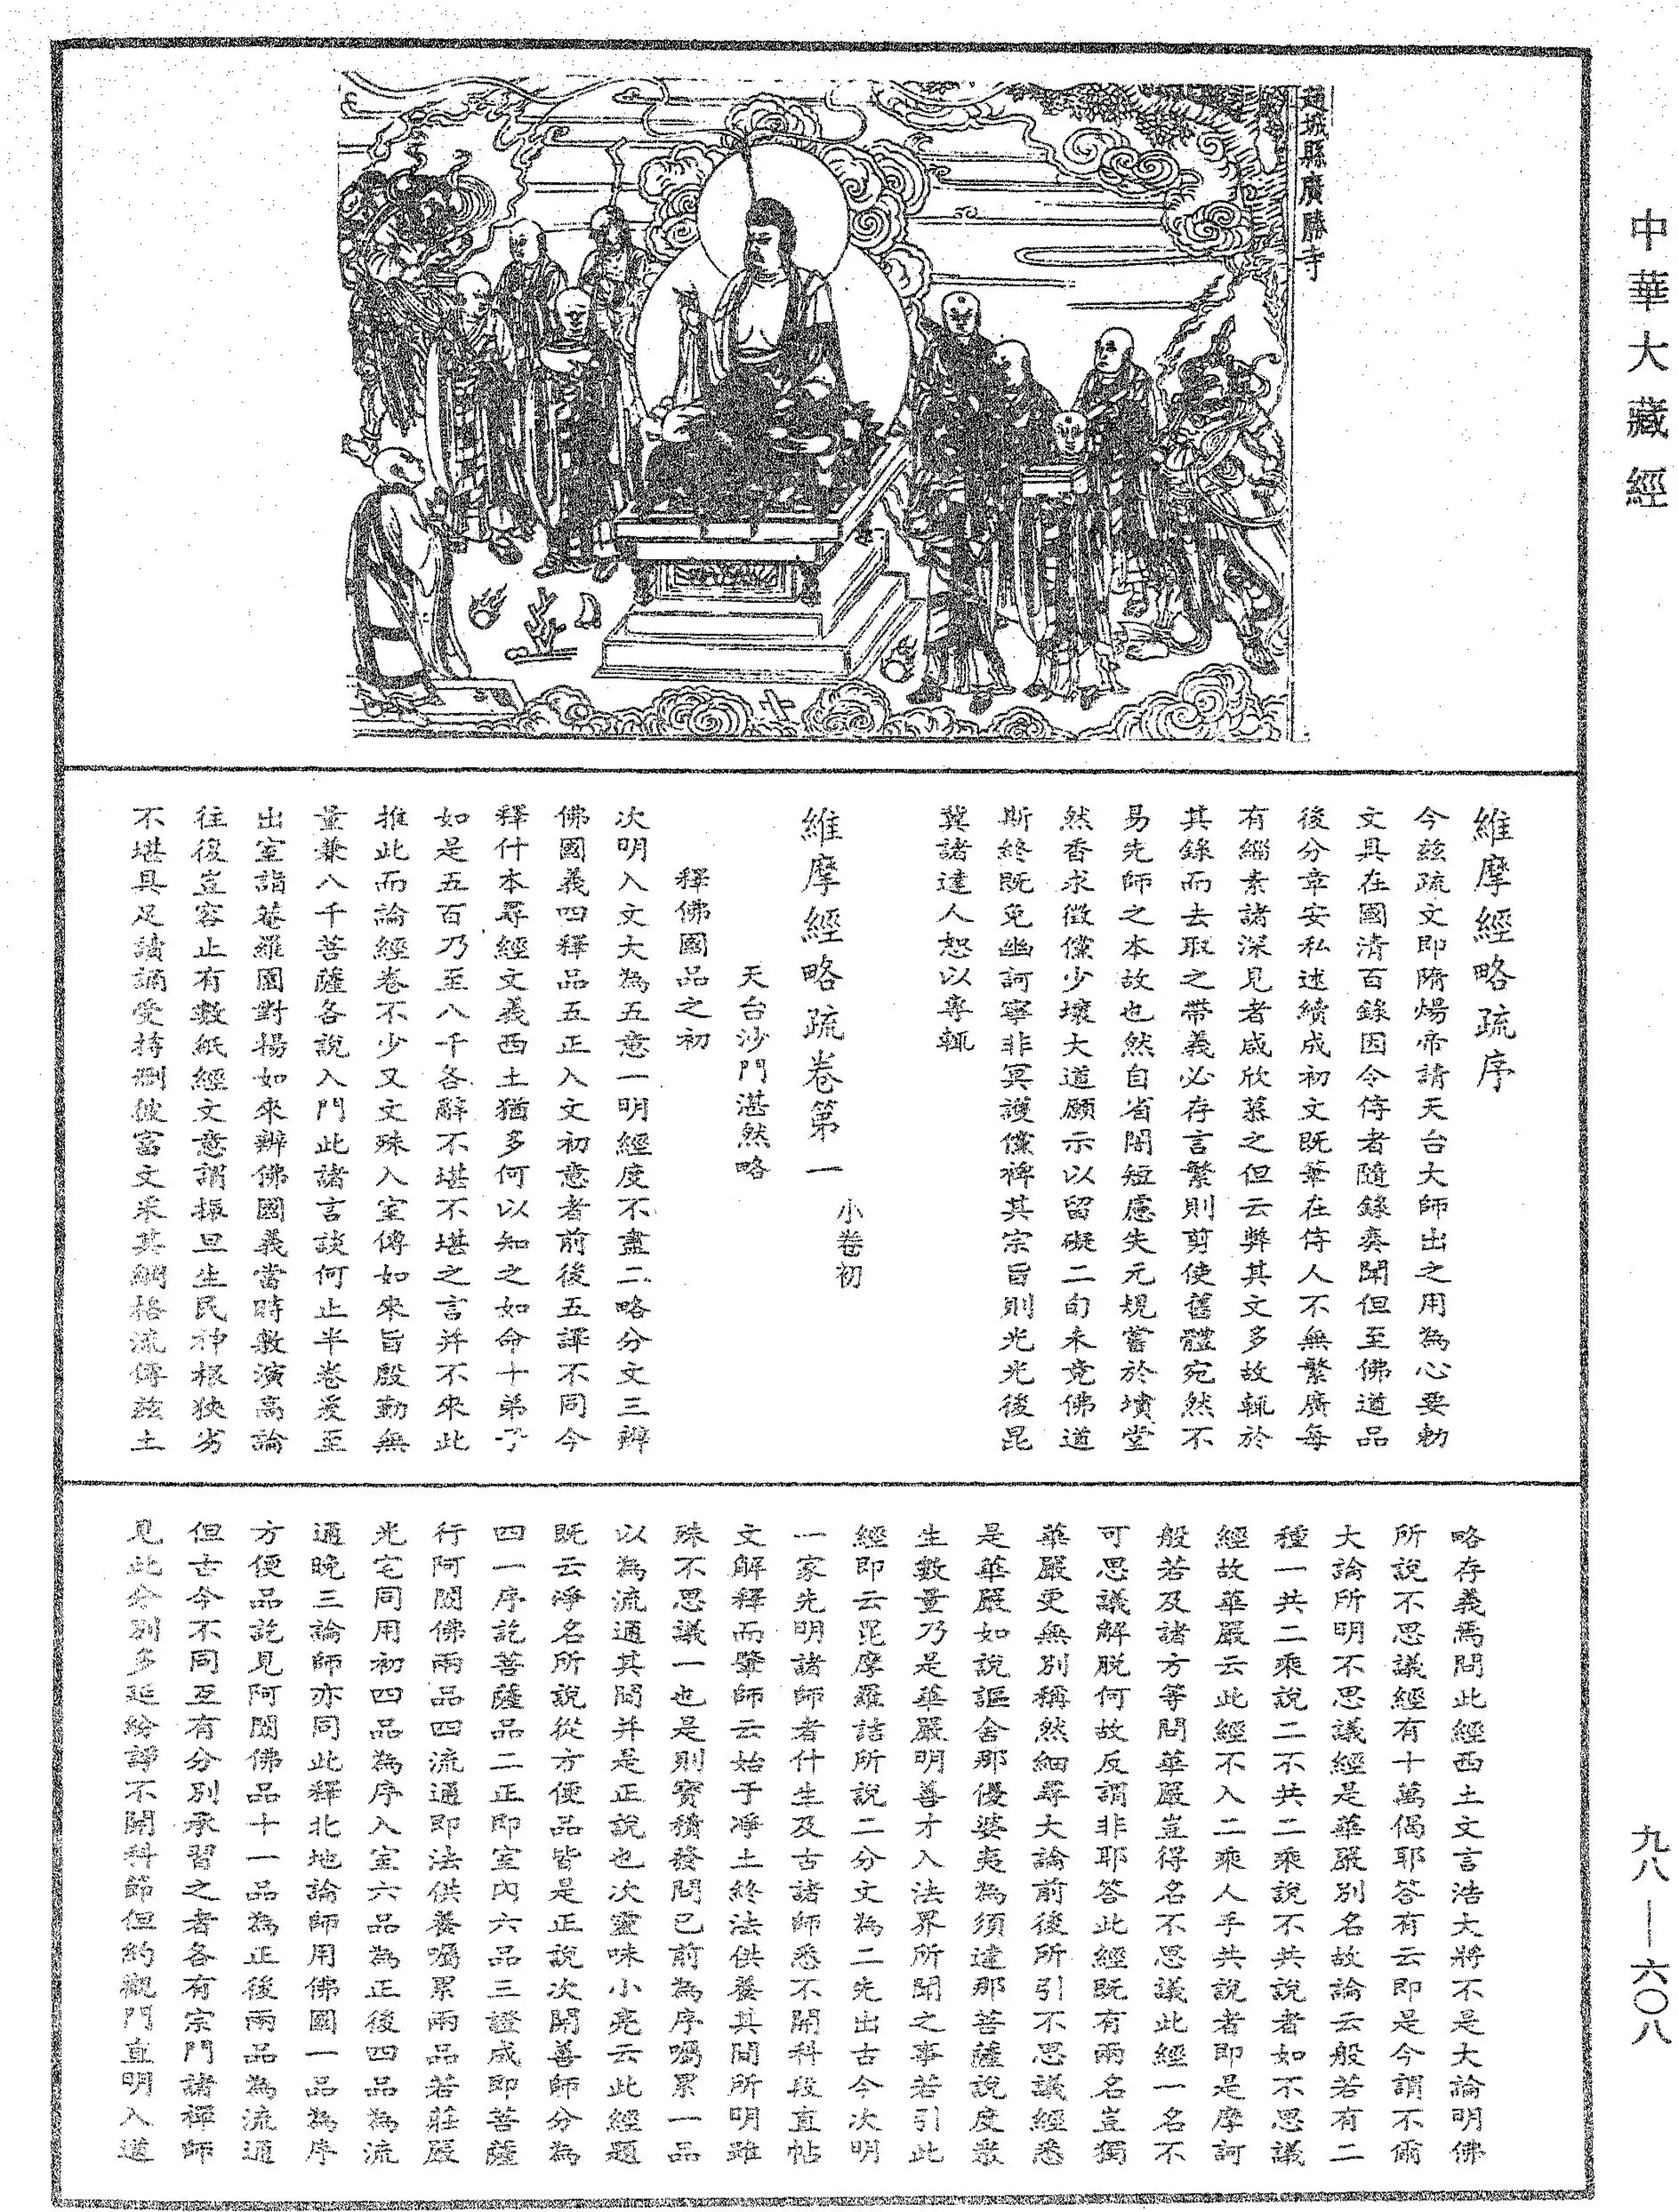 中華大藏經
趙城縣廣勝寺
維摩經略疏序
今茲疏文即隋煬帝請天台大師出之用為心要勅
文具在國清百錄因令侍者隨錄奏聞但至佛道品
後分章安私述續成初文既筆在侍人不無繁廣每
有緇素諸深見者咸欣慕之但云弊其文多故輒於
其錄而去取之帶義必存言繁則剪使舊體宛然不
易先師之本故也然自省闇短慮失元規嘗於墳堂
然香求徵儻少壞大道願示以留礙二旬未竟佛道
斯終既免幽訶寧非冥護儻裨其宗旨則光光後昆
冀諸達人恕以專輒
維摩經略疏卷第一 小卷初
天台沙門湛然略
釋佛國品之初
次明入文大為五意一明經度不盡二略分文三辨
佛國義四釋品五正入文初意者前後五譯不同今
釋什本尋經文義西土猶多何以知之如命十弟子
如是五百乃至八千各辭不堪不堪之言并不來此
推此而論經卷不少又文殊入室傳如來旨殷勤無
量兼八千菩薩各說入門此諸言談何止半卷爰至
出室詣菴羅園對揚如來辨佛國義當時敷演高論
往復豈容止有數紙經文意謂振旦生民神根狹劣
不堪具足讀誦受持刪彼富文采其綱格流傳茲土
略存義焉問此經西土文言浩大將不是大論明佛
所說不思議經有十萬偈耶答有云即是今謂不爾
大論所明不思議經是華嚴別名故論云般若有二
種一共二乘說二不共二乘說不共說者如不思議
經故華嚴云此經不入二乘人手共說者即是摩訶
般若及諸方等問華嚴豈得名不思議此經一名不
可思議解脫何故反謂非耶答此經既有兩名豈獨
華嚴更無別稱然細尋大論前後所引不思議經悉
是華嚴如說謳舍那優婆夷為須達那菩薩說度眾
生數量乃是華嚴明善才入法界所聞之事若引此
經即云毘摩羅詰所說二分文為二先出古今次明
一家先明諸師者什生及古諸師悉不開科段直帖
文解釋而肇師云始于淨土終法供養其間所明雖
殊不思議一也是則寶積發問已前為序囑累一品
以為流通其間并是正說也次靈味小亮云此經題
既云淨名所說從方便品皆是正說次開善師分為
四一序訖菩薩品二正即室內六品三證成即菩薩
行阿閦佛兩品四流通即法供養囑累兩品若莊嚴
光宅同用初四品為序入室六品為正後四品為流
通晚三論師亦同此釋北地論師用佛國一品為序
方便品訖見阿閦佛品十一品為正後兩品為流通
但古今不同互有分別承習之者各有宗門諸禪師
見此分別多延紛諍不開科節但約觀門直明入道
九八—六〇八